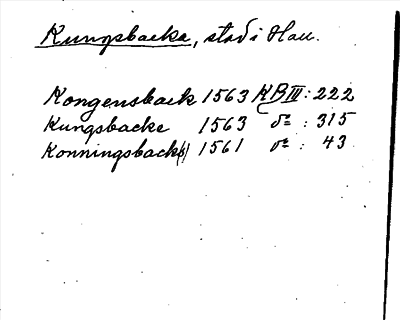 Kungsbacka, stad i Hall.
Kongensback 1563 KB III : 222
Kungsbacke 1563 do : 315
Konningsback(e) 1561 do : 43